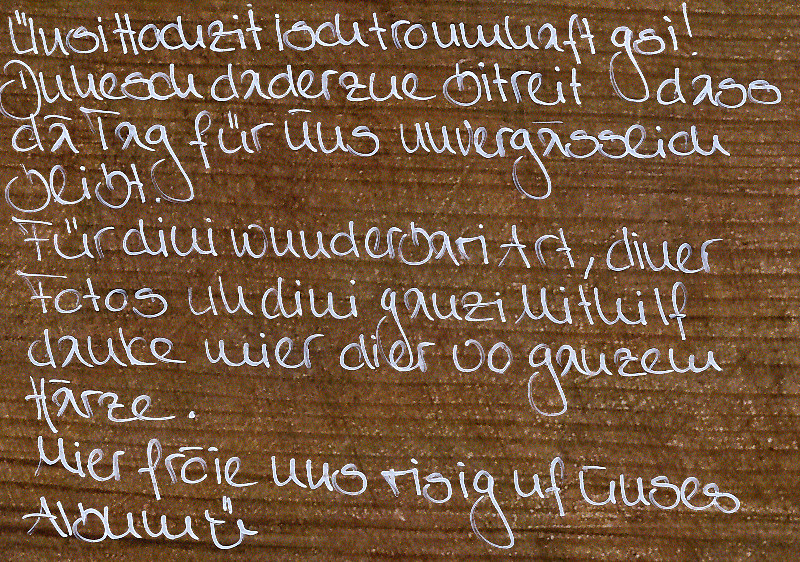 Ünsi Hochziit isch troumhaft gsi!
Du hesch da derzue bitreit dass
dä Tag für üns unvergässlich
blibt.
Für dini wunderbari Art, diner
Fotos un dini ganzi Mithilf
danke mier dier vo ganzem
Härze.
Mier fröie üns risig uf ünses
Album ü